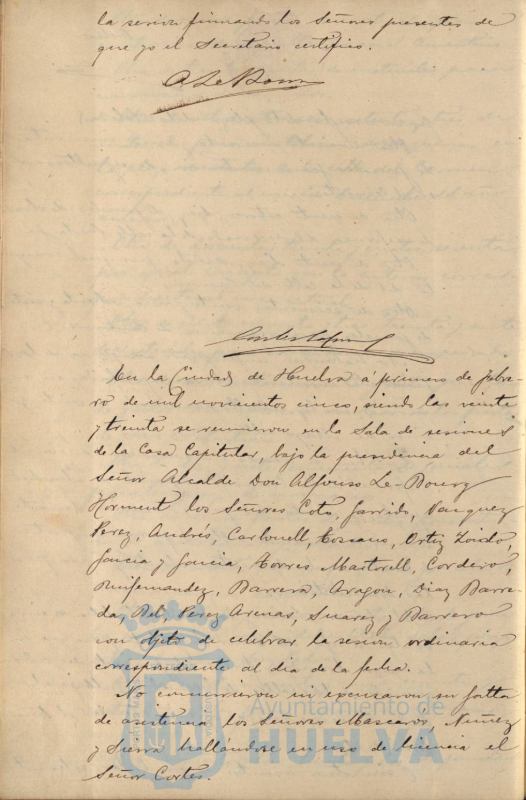 la sesion firmando los Señores presentes de
que yo el Secretario certifico.
A Le Bour
En la Ciudad de Huelva á primero de Febre-
ro de mil novecientos cinco, siendo las veinte
y treinta se reunieron en la Sala de sesiones
de la Casa Capitular, bajo la presidencia del
Señor Alcalde Don Alfonso Le-Bourg
Horment los Señores Coto, Garrido, Vazquez
Perez, Andrés, Carbonell, Toscano, Ortiz Zoido,
Garcia y Garcia, Torres Martorell, Cordero,
Ruifernandez, Barrera, Aragon, Diaz Barre-
da, Bel, Perez Arenas, Suarez y Barrero
con objeto de celebrar la sesion ordinaria
correspondiente al dia de la fecha.
No concurrieron ni escusaron su falta
de asistencia los Señores Mascarós, Nuñez
y Sierra hallándose en uso de licencia el
Señor Cortes.
Ayuntamiento de
HUELVA